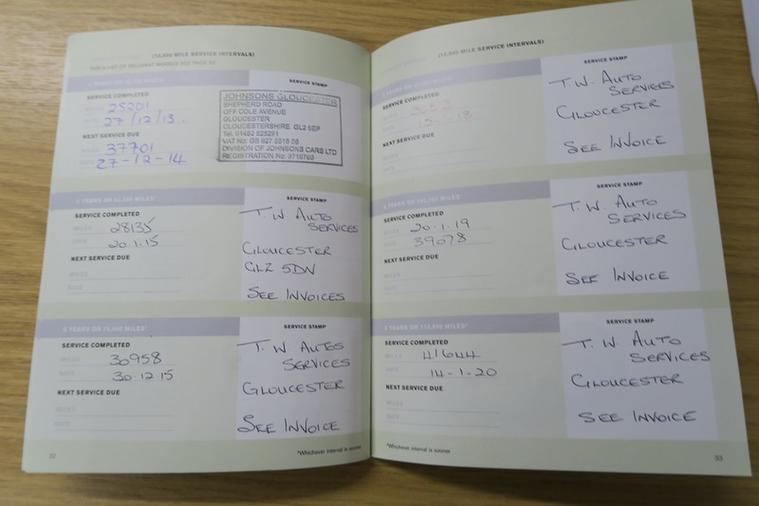 (12,500 MILE SERVICE INTERVALS)
SERVICE STAMP
SERVICE COMPLETED
MILES 25201
DATE 27/12/13
NEXT SERVICE DUE
MILES 37701
DATE 27-12-14
JOHNSONS GLOUCESTER
SHEPHERD ROAD
OFF COLE AVENUE
GLOUCESTER
GLOUCESTERSHIRE GL2 5EP
DIVISION OF JOHNSONS CARS LTD
5 YEARS OR 62,500 MILES*
SERVICE STAMP
SERVICE COMPLETED
MILES 28135
DATE 20.1.15
NEXT SERVICE DUE
MILES
DATE
T.W AUTO
SERVICES
GLOUCESTER
GL2 5DW
SEE INVOICES
6 YEARS OR 75,000 MILES*
SERVICE STAMP
SERVICE COMPLETED
MILES 30958
DATE 30.12.15
NEXT SERVICE DUE
MILES
DATE
T.W. AUTOS
SERVICES
GLOUCESTER
SEE INVOICE
*Whichever interval is sooner
32
SERVICE INTERVALS)
SERVICE STAMP
T.W. AUTO
SERVICES
GLOUCESTER
SEE INVOICE
SERVICE STAMP
SERVICE COMPLETED
20.1.19
39078
NEXT SERVICE DUE
T.W. AUTO
SERVICES
GLOUCESTER
SEE INVOICE
SERVICE STAMP
SERVICE COMPLETED
MILES 41644
DATE 14-1-20
NEXT SERVICE DUE
MILES
DATE
T.W. AUTO
SERVICES
GLOUCESTER
SEE INVOICE
*Whichever interval is sooner
33